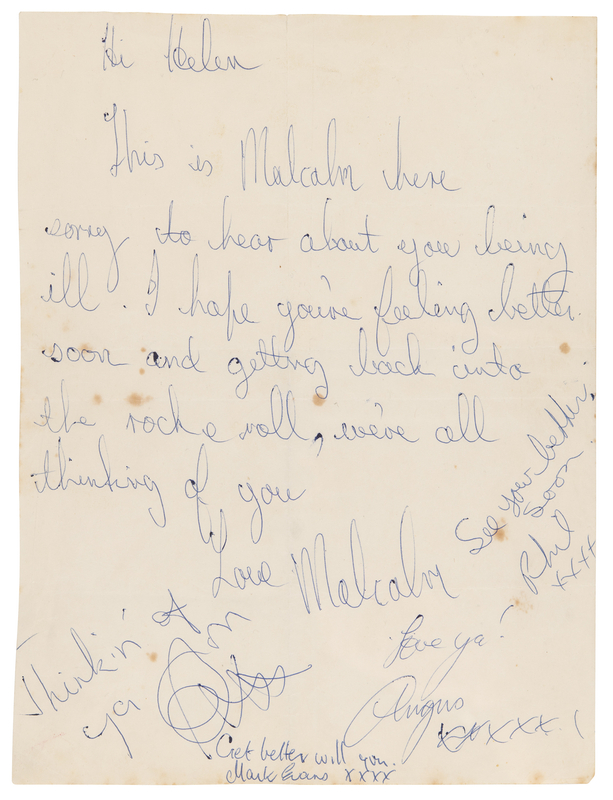 Hi Helen
This is Malcolm here
sorry to hear about you being
ill. I hope you're feeling better
soon and getting back into
the rock & roll, we're all
thinking of you
Love Malcolm
See your better
soon
Phil
xxxx
Thinkin'
of
ya
Love ya!
Angus
xxxxxx!
Get better will you.
Mark Evans xxxx